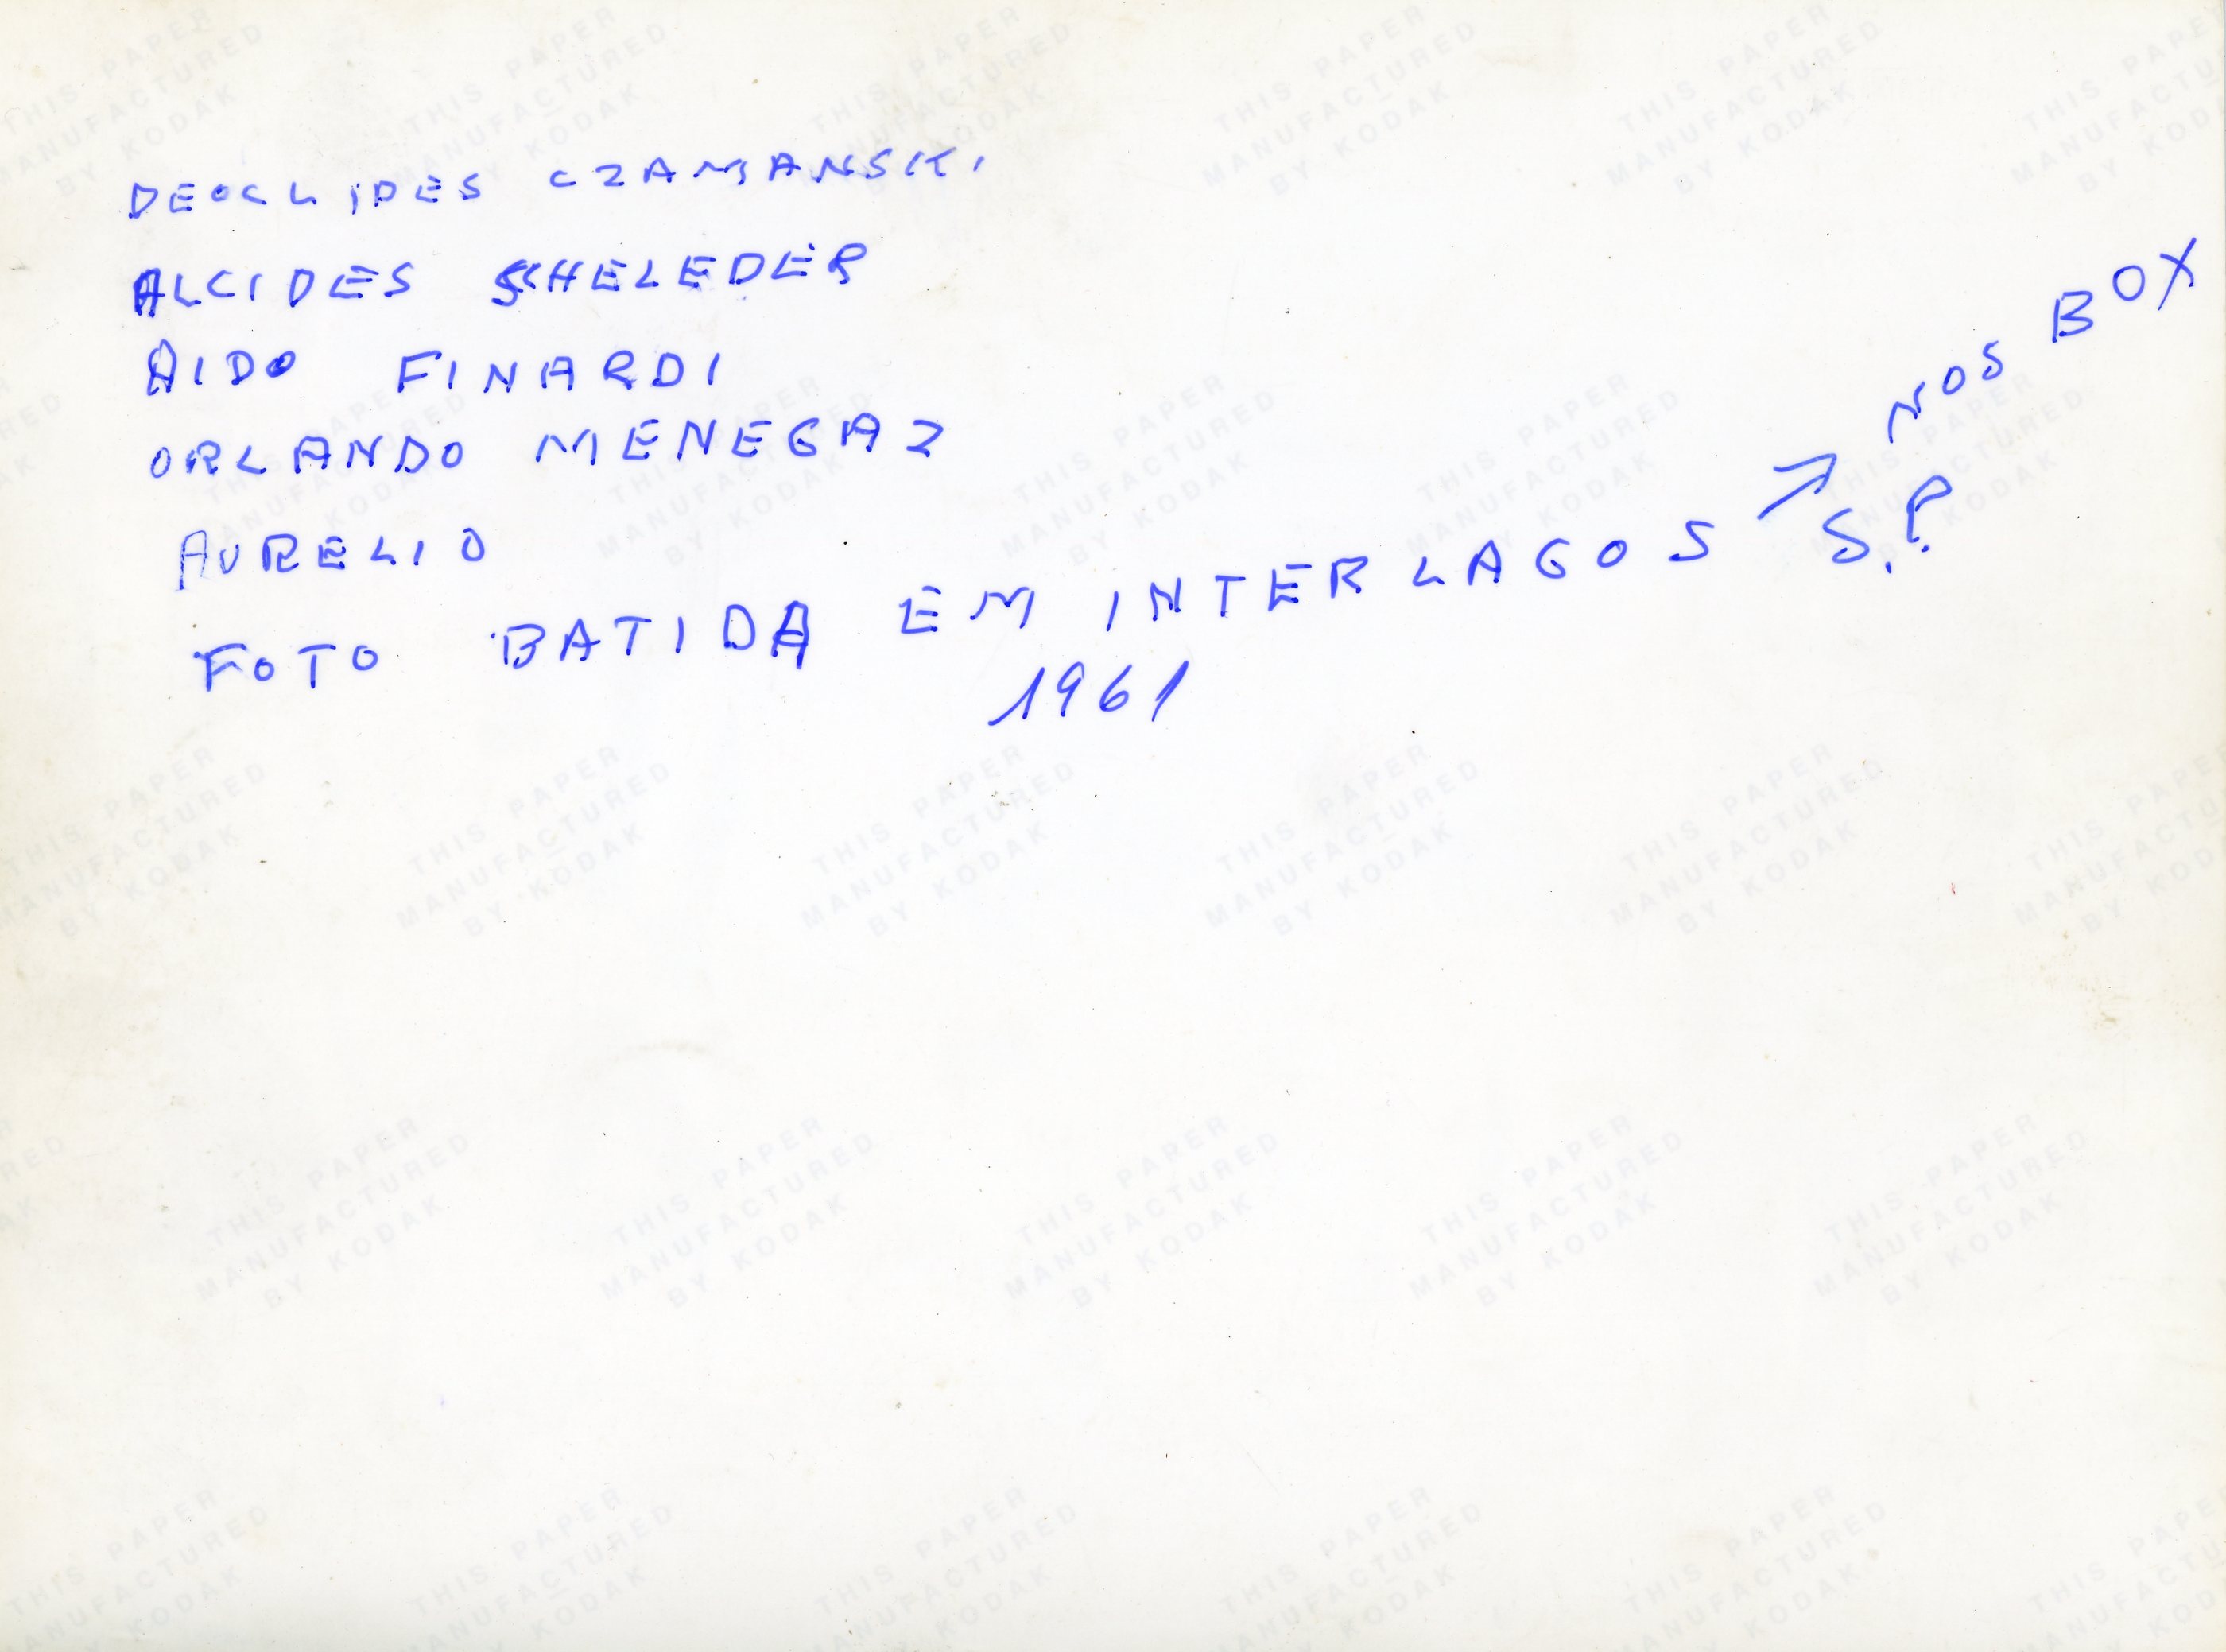 DEOCLIDES CZAMANSKI
ALCIDES SCHELEDER
AIDO FINARDI
ORLANDO MENEGAZ
AURELIO
FOTO BATIDA EM INTERLAGOS ↗ NOS BOX
S.P.
1961
THIS PAPER
MANUFACTURED
BY KODAK